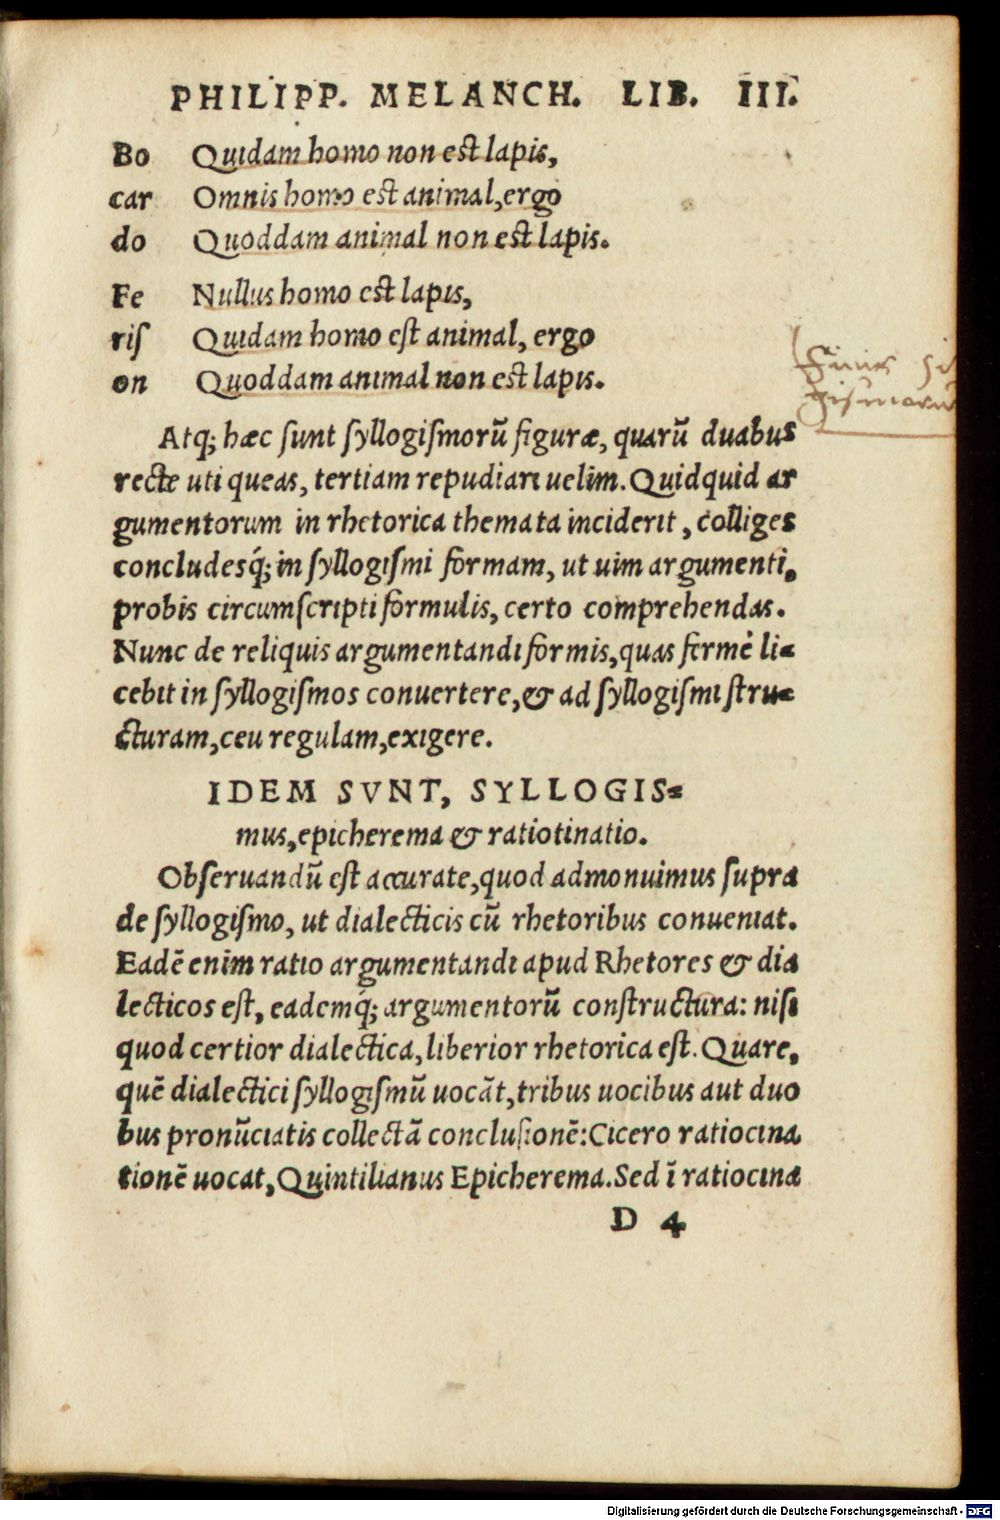 PHILIPP. MELANCH. LIB. III.
Bo Quidam homo non est lapis,
car Omnis homo est animal, ergo
do Quoddam animal non est lapis.
Fe Nullus homo est lapis,
riſ Quidam homo eſt animal, ergo
on Quoddam animal non est lapis.
Atq; hæc ſunt ſyllogiſmorũ figuræ, quarũ duabus
recte uti queas, tertiam repudiari uelim. Quidquid ar
gumentorum in rhetorica themata inciderit, colliges
concludesq́; in ſyllogiſmi formam, ut uim argumenti,
probis circumſcripti formulis, certo comprehendas.
Nunc de reliquis argumentandi formis, quas fermè li-
cebit in ſyllogiſmos conuertere, & ad ſyllogiſmi ſtru-
cturam, ceu regulam, exigere.
IDEM SVNT, SYLLOGIS-
mus, epicherema & ratiotinatio.
Obſeruandũ eſt accurate, quod admonuimus ſupra
de ſyllogiſmo, ut dialecticis cũ rhetoribus conueniat.
Eadẽ enim ratio argumentandi apud Rhetores & dia
lecticos eſt, eademq́; argumentorũ conſtructura: niſi
quod certior dialectica, liberior rhetorica eſt. Quare,
quẽ dialectici ſyllogiſmũ uocãt, tribus uocibus aut duo
bus pronũciatis collectã concluſionẽ: Cicero ratiocina
tionẽ uocat, Quintilianus Epicherema. Sed ĩ ratiocina
D 4
Digitalisierung gefördert durch die Deutsche Forschungsgemeinschaft - DFG